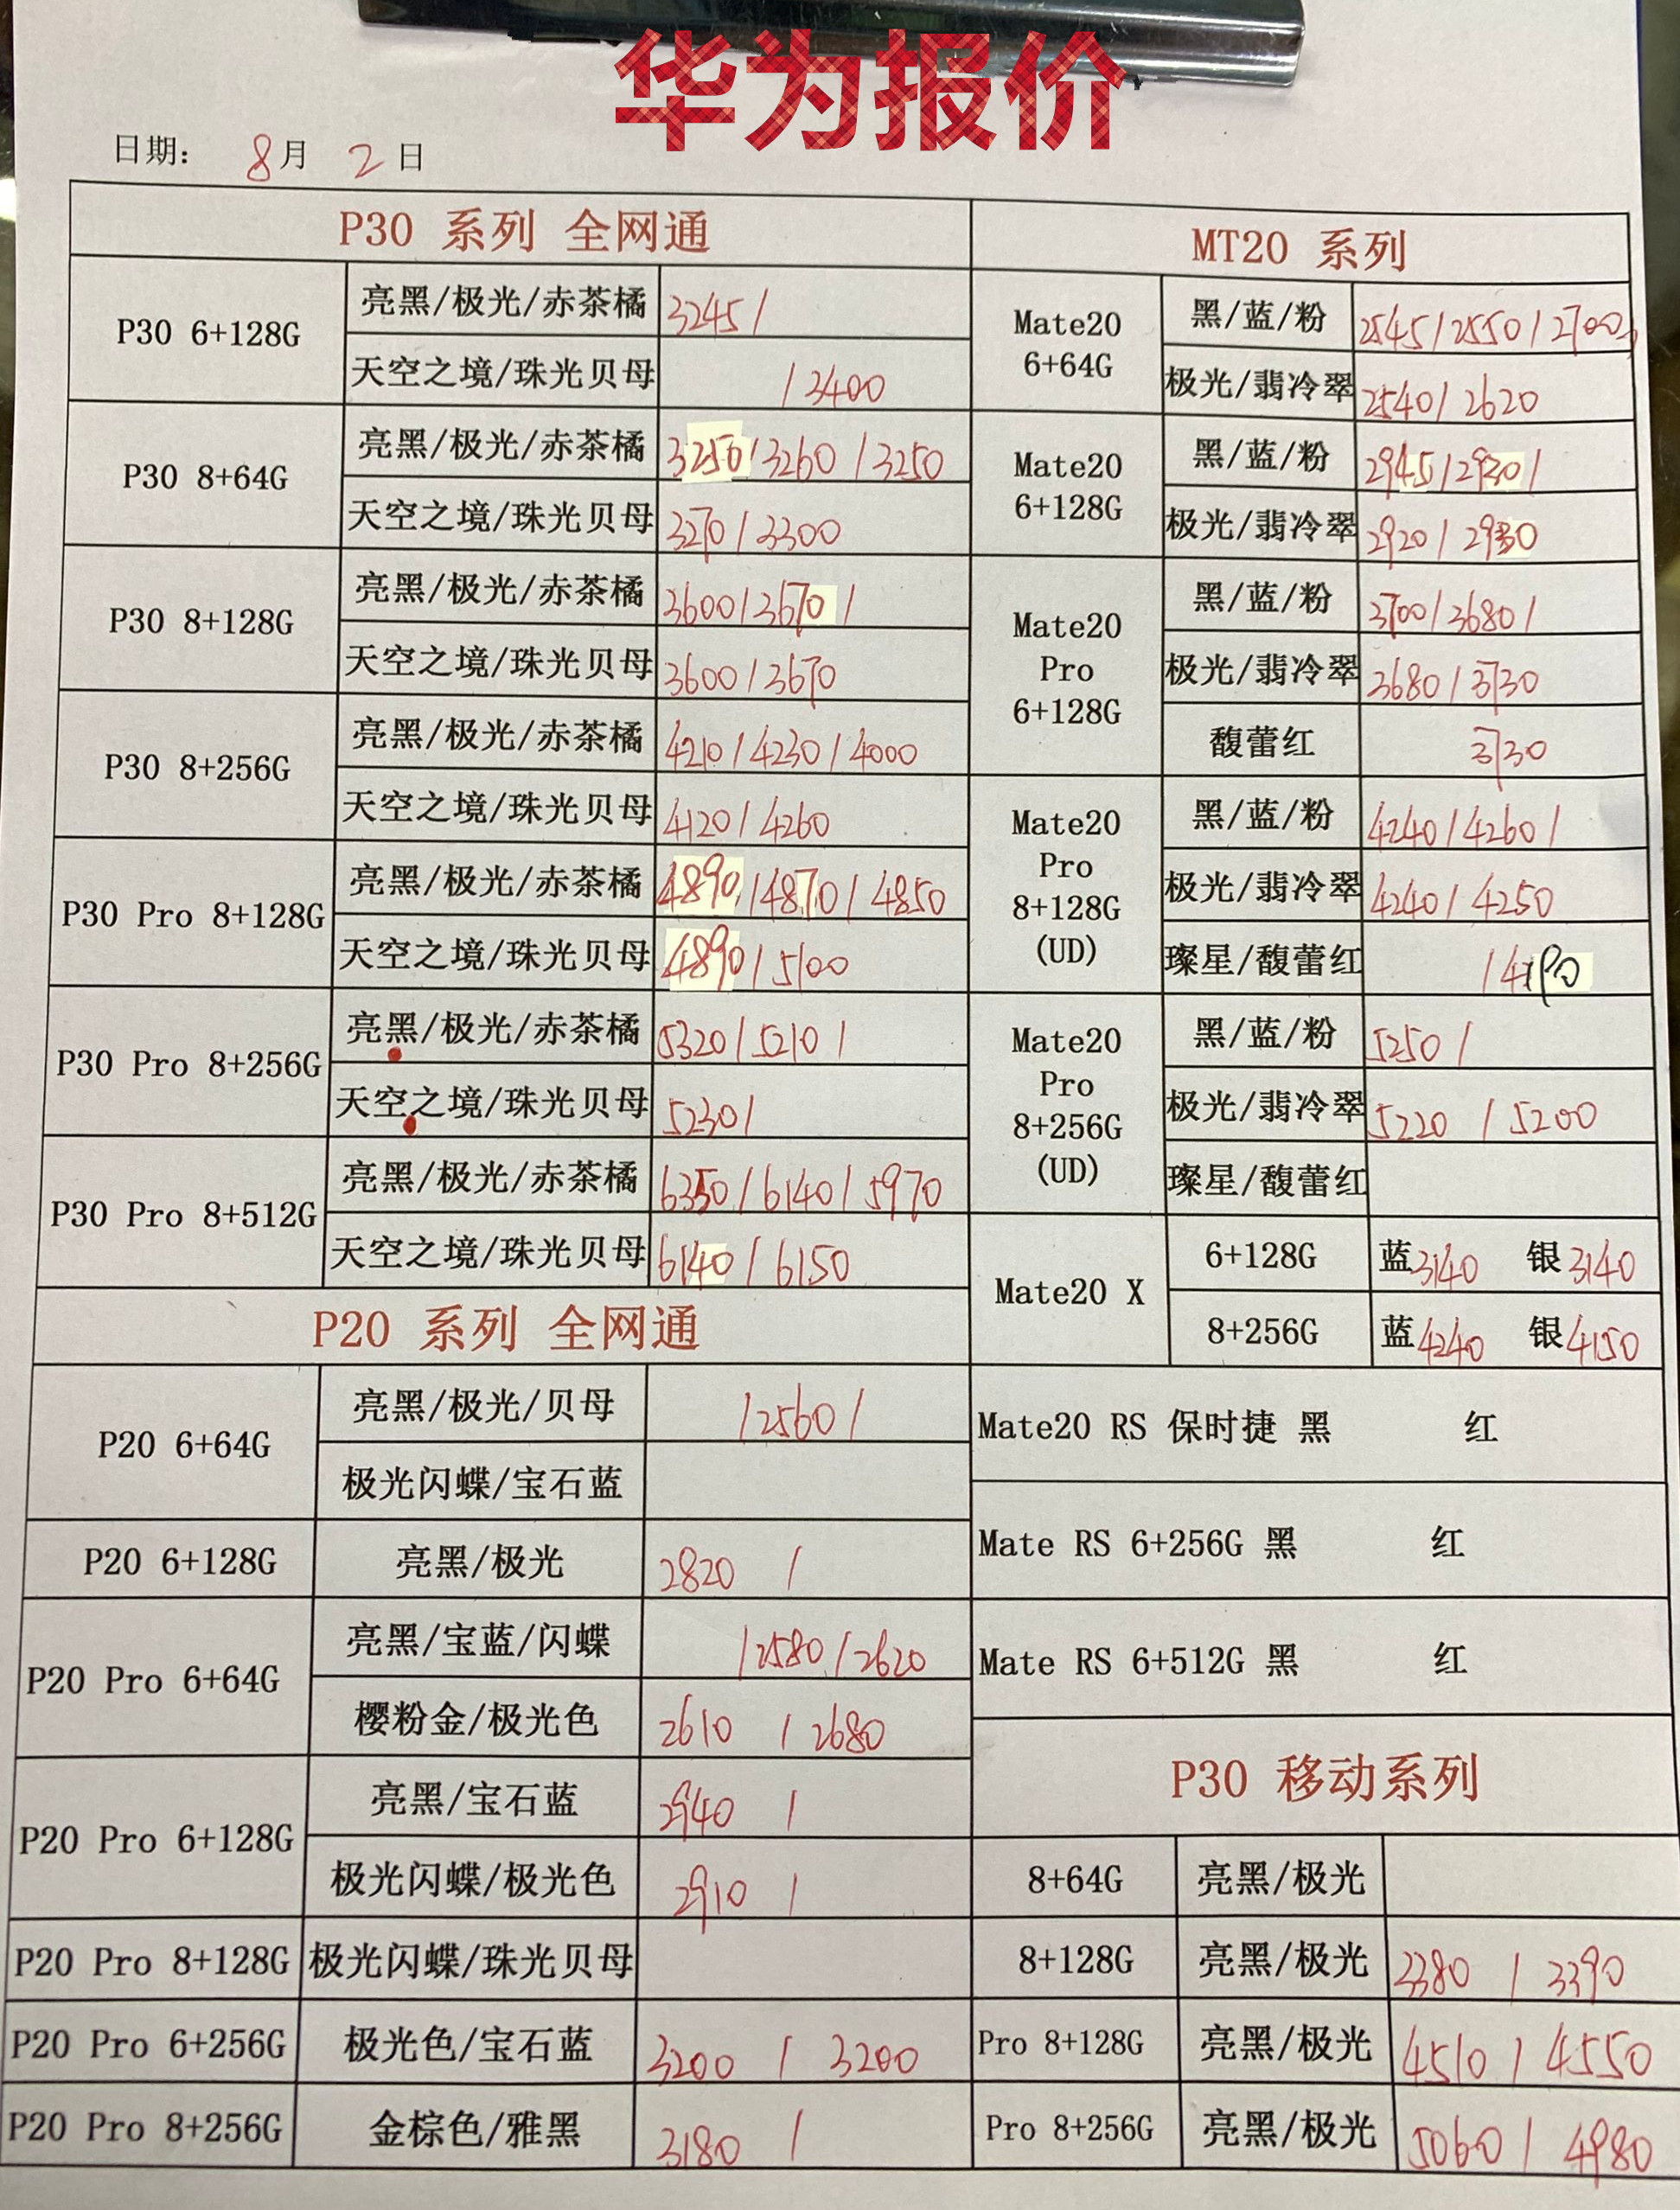 华为报价
日期： 8月 2日
P30 系列 全网通
P30 6+128G 亮黑/极光/赤茶橘 3245/
天空之境/珠光贝母 /3400
P30 8+64G 亮黑/极光/赤茶橘 3250/3260/3250
天空之境/珠光贝母 3270/3300
P30 8+128G 亮黑/极光/赤茶橘 3600/3670/
天空之境/珠光贝母 3600/3670
P30 8+256G 亮黑/极光/赤茶橘 4210/4230/4000
天空之境/珠光贝母 4120/4260
P30 Pro 8+128G 亮黑/极光/赤茶橘 4890/4870/4850
天空之境/珠光贝母 4890/5100
P30 Pro 8+256G 亮黑/极光/赤茶橘 5320/5210/
天空之境/珠光贝母 5230/
P30 Pro 8+512G 亮黑/极光/赤茶橘 6350/6140/5970
天空之境/珠光贝母 6140/6150
P20 系列 全网通
P20 6+64G 亮黑/极光/贝母 /2560/
极光闪蝶/宝石蓝
P20 6+128G 亮黑/极光 2820 /
P20 Pro 6+64G 亮黑/宝蓝/闪蝶 /2580/2620
樱粉金/极光色 2610 / 2680
P20 Pro 6+128G 亮黑/宝石蓝 2940 /
极光闪蝶/极光色 2910 /
P20 Pro 8+128G 极光闪蝶/珠光贝母
P20 Pro 6+256G 极光色/宝石蓝 3200 / 3200
P20 Pro 8+256G 金棕色/雅黑 3180 /
MT20 系列
Mate20
6+64G
黑/蓝/粉 2545/2550/2700
极光/翡冷翠 2540/2620
Mate20
6+128G
黑/蓝/粉 2945/2930/
极光/翡冷翠 2920/2930
Mate20
Pro
6+128G
黑/蓝/粉 3700/3680/
极光/翡冷翠 3680/3730
馥蕾红 3730
Mate20
Pro
8+128G
(UD)
黑/蓝/粉 4240/4260/
极光/翡冷翠 4240/4250
璨星/馥蕾红
Mate20
Pro
8+256G
(UD)
黑/蓝/粉 5250 /
极光/翡冷翠 5220 / 5200
璨星/馥蕾红
Mate20 X
6+128G 蓝3140 银3140
8+256G 蓝4240 银4150
Mate20 RS 保时捷 黑 红
Mate RS 6+256G 黑 红
Mate RS 6+512G 黑 红
P30 移动系列
8+64G 亮黑/极光
8+128G 亮黑/极光 3380 / 3390
Pro 8+128G 亮黑/极光 4510 / 4550
Pro 8+256G 亮黑/极光 5060 / 4980